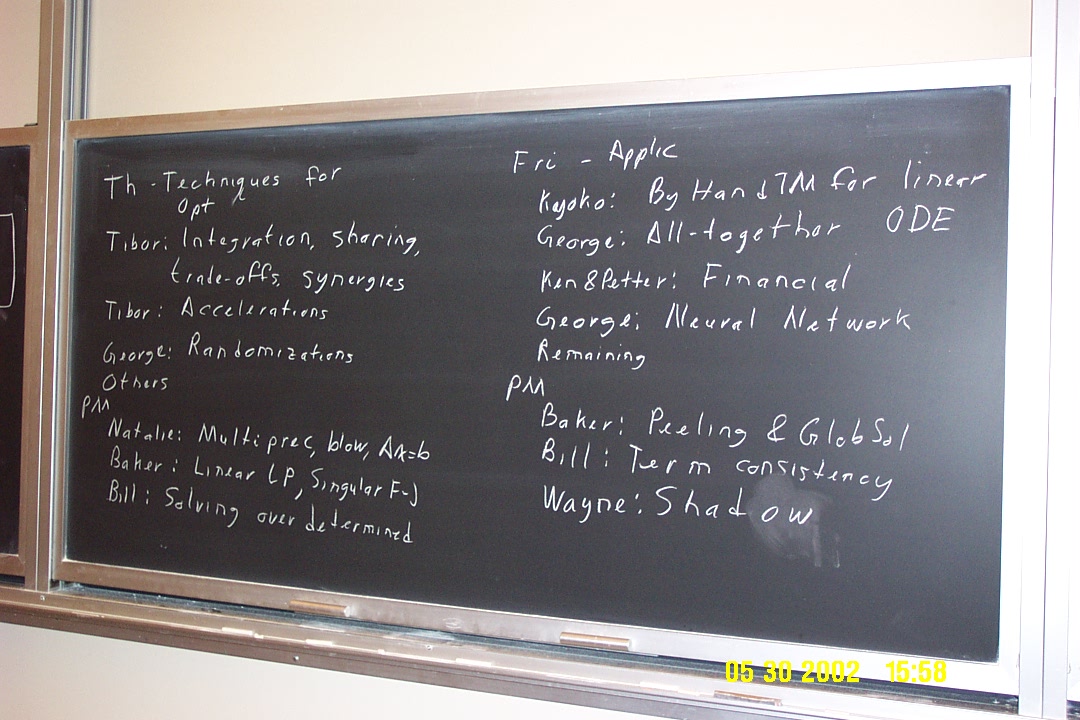 Th - Techniques for
Opt
Tibor: Integration, sharing,
trade-offs, synergies
Tibor: Accelerations
George: Randomizations
Others
PM
Natalie: Multiprec, blow, AX=b
Baker: Linear LP, Singular F-J
Bill: Solving over determined
Fri - Applic
Kyoko: By Hand TM for linear
ODE
George: All-together
Ken & Petter: Financial
George: Neural Network
Remaining
PM
Baker: Peeling & GlobSol
Bill: Term consistency
Wayne: Shadow
05 30 2002 15:58